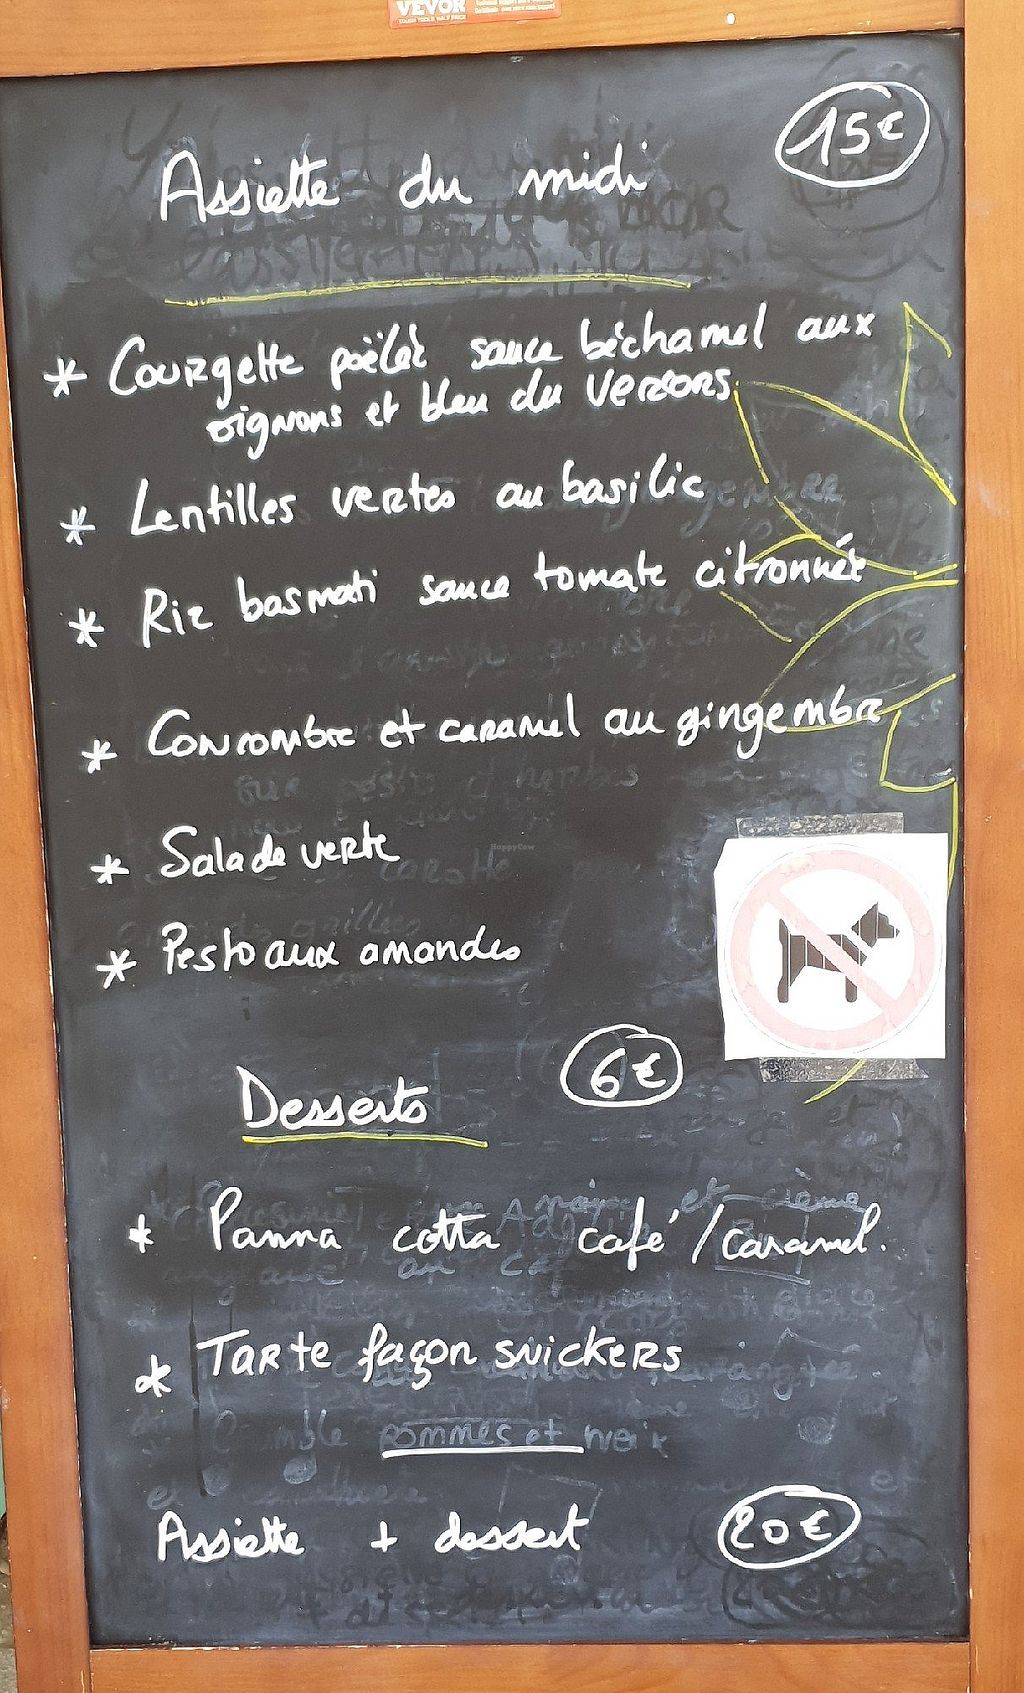 VEVOR
15€
Assiette du midi
* Courgette poëlée sauce béchamel aux
oignons et bleu du Vercors
* Lentilles vertes au basilic
* Riz basmati sauce tomate citronnée
* Concombre et caramel au gingembre
* Salade verte
HappyCow
* Pesto aux amandes
Desserts 6€
* Panna cotta café / caramel.
* Tarte façon snickers
pommes et noix
Assiette + dessert 20€